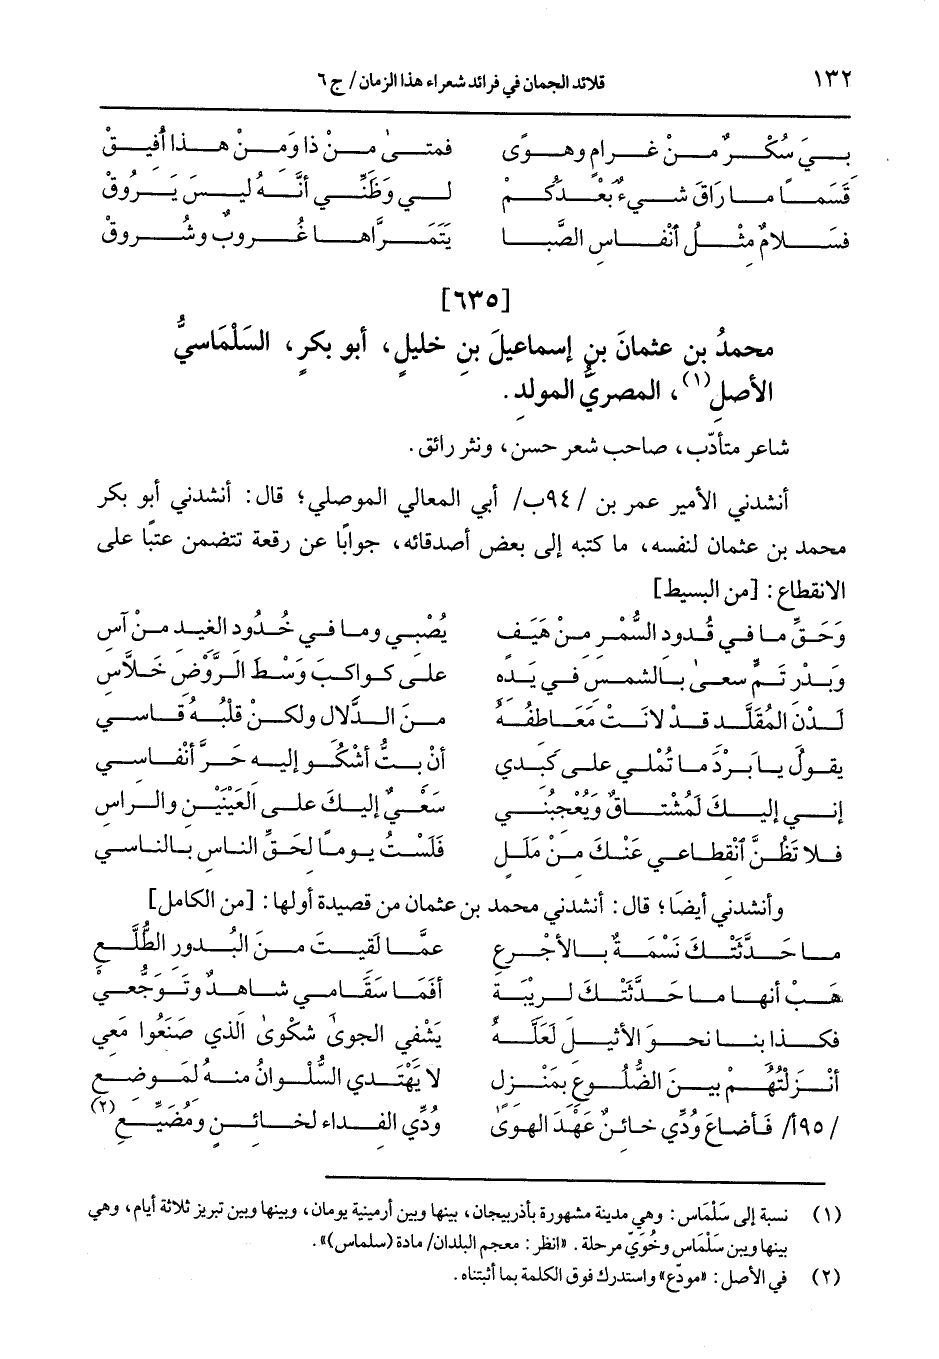 ١٣٢ قلائد الجمان في فرائد شعراء هذا الزمان / ج ٦
بيَ سُكْرٌ مِنْ غرامٍ وهوًى فمتى مِنْ ذا وَمِنْ هذا أُفيقْ
قَسَمًا ما رَاقَ شيءٌ بَعْدَكُمْ لي وَظَنِّي أنَّهُ ليسَ يَرُوقْ
فسَلامٌ مِثْلُ أنْفاسِ الصَّبا يَتَمَرَّاها غُروبٌ وشُروقْ
[٦٣٥]
محمدُ بن عثمانَ بنِ إسماعيلَ بنِ خليلٍ، أبو بكرٍ، السَلْمَاسيُّ
الأصلِ(١)، المصريُّ المولدِ.
شاعر متأدّب، صاحب شعر حسن، ونثر رائق.
أنشدني الأمير عمر بن /٩٤ب/ أبي المعالي الموصلي؛ قال: أنشدني أبو بكر
محمد بن عثمان لنفسه، ما كتبه إلى بعض أصدقائه، جوابًا عن رقعة تتضمن عتبًا على
الانقطاع: [من البسيط]
وَحَقِّ ما في قُدودِ السُّمْرِ مِنْ هَيَفٍ يُصْبي وما في خُدُودِ الغيدِ مِنْ آسِ
وبَدْرِ تَمٍّ سعىٰ بالشمسِ في يَدِهِ على كواكبَ وَسْطَ الرَّوْضِ خَلاَّسِ
لَدْنِ المُقَلَّدِ قَدْ لانَتْ مَعَاطفُهُ مِنَ الدَّلالِ ولكنْ قلْبُهُ قاسي
يقولُ يا بَرْدَ ما تُمْلي على كَبدي أنْ بتُّ أشْكُو إليهِ حَرَّ أنْفاسي
إني إليكَ لَمُشْتاقٌ وَيُعْجبُني سَعْيٌ إليكَ على العَيْنَيْنِ والراسِ
فلا تَظُنَّ ٱنْقطاعي عَنْكَ مِنْ مَلَلٍ فَلَسْتُ يومًا لحَقِّ الناسِ بالناسي
وأنشدني أيضًا؛ قال: أنشدني محمد بن عثمان من قصيدة أولها: [من الكامل]
ما حَدَّثَتْكَ نَسْمَةٌ بالأجْرعِ عمَّا لَقيتَ منَ البُدورِ الطُّلَّعِ
هَبْ أنها ما حَدَّثَتْكَ لريْبَةٍ أفَمَا سَقَامي شاهدٌ وتَوَجُّعي
فكذا بنا نحوَ الأثيلِ لَعَلَّهُ يَشْفي الجوىٰ شكوىٰ الذي صَنَعُوا مَعي
أنْزَلْتُهُمْ بينَ الضُّلُوعِ بمَنْزلٍ لا يَهْتَدي السُّلْوانُ منهُ لمَوضعِ
/٩٥أ/ فَأضاعَ وُدِّي خائنٌ عَهْدَ الهوىٰ وُدِّي الفداء لخائنٍ ومُضَيِّعِ(٢)
(١) نسبة إلى سَلْمَاس: وهي مدينة مشهورة بأذربيجان، بينها وبين أرمينية يومان، وبينها وبين تبريز ثلاثة أيام، وهي
بينها وبين سَلْمَاس وخُوَيّ مرحلة. «انظر: معجم البلدان/ مادة (سلماس)».
(٢) في الأصل: «مودّع» واستدرك فوق الكلمة بما أثبتناه.